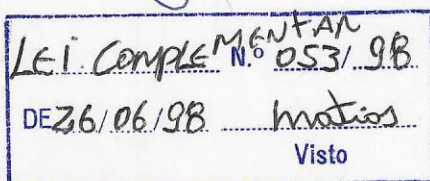 LEI COMPLEMENTAR N.º 053/98
DE 26/06/98
Visto